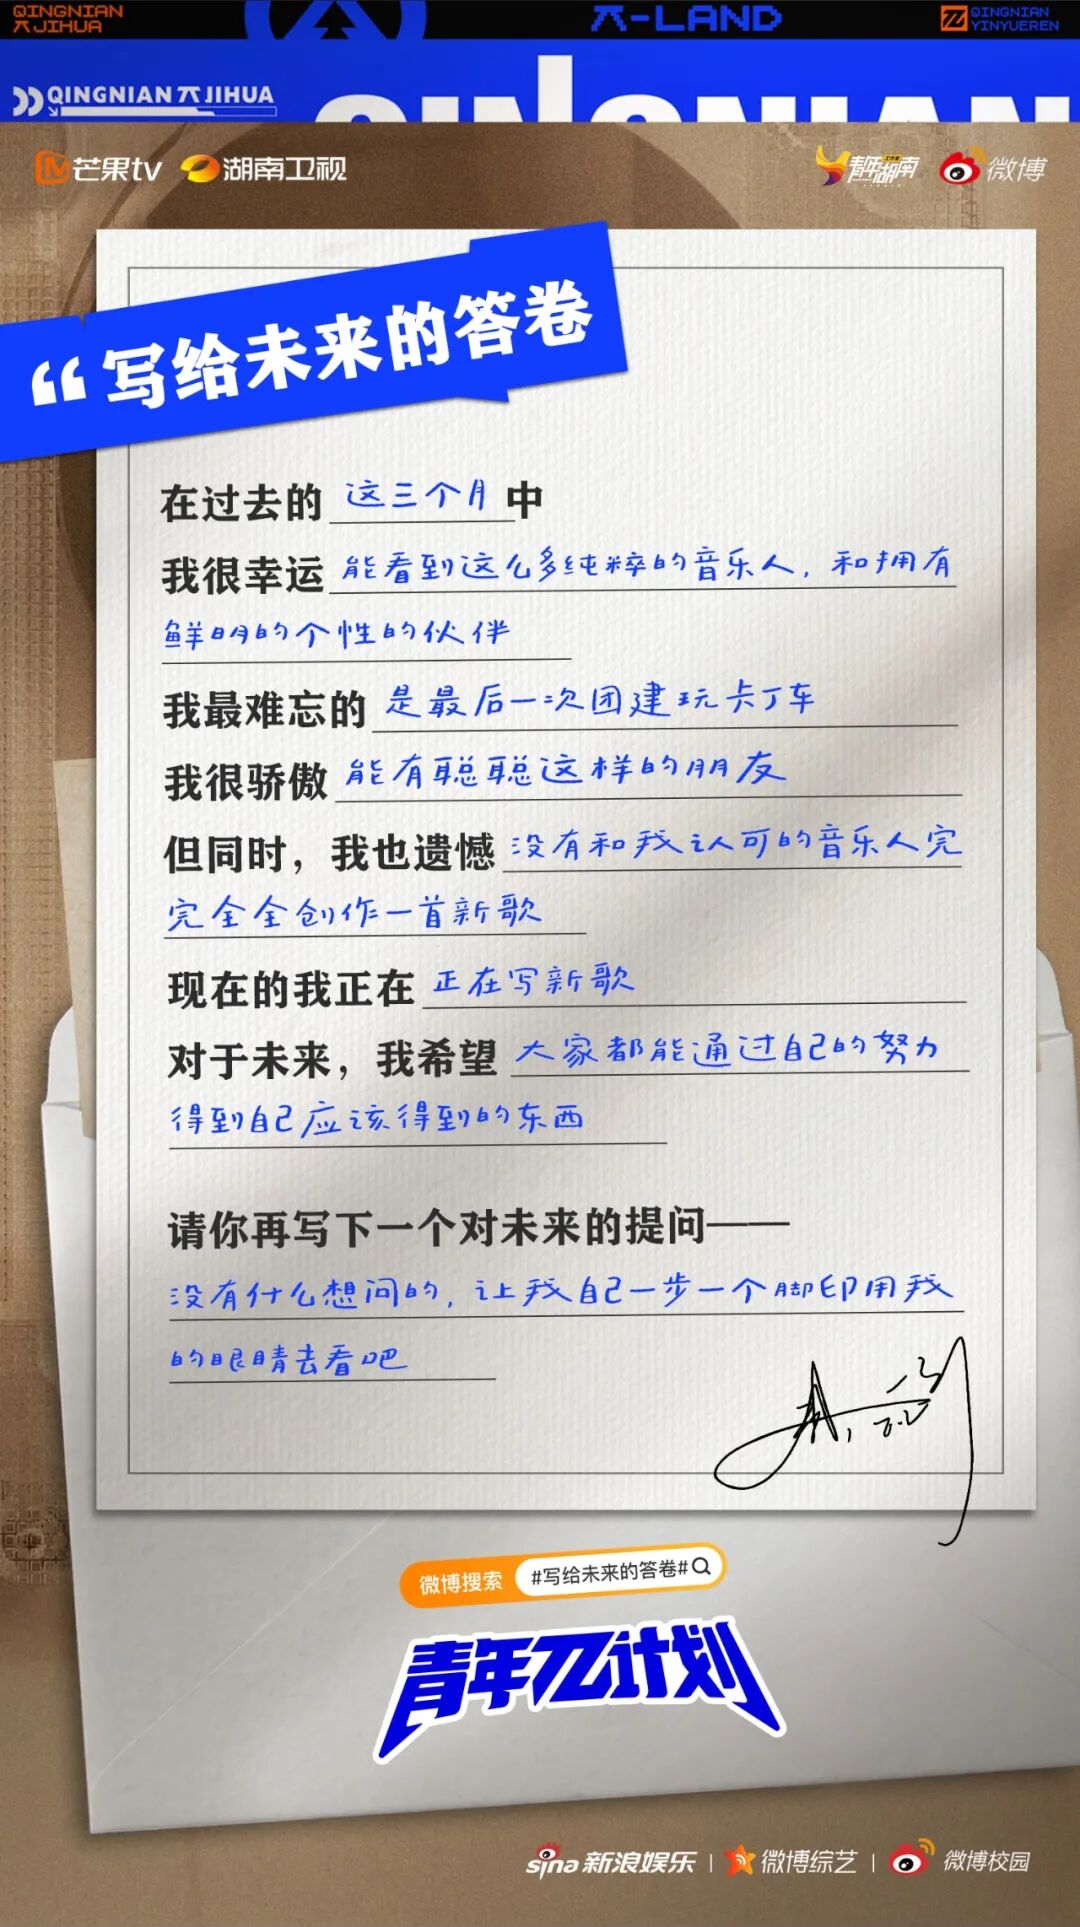 QINGNIAN
π JIHUA
π-LAND
QINGNIAN
YINYUEREN
QINGNIAN π JIHUA
QINGNIAN
芒果tv 湖南卫视
青年湖南 工作室 微博
“写给未来的答卷
在过去的 这三个月 中
我很幸运 能看到这么多纯粹的音乐人，和拥有
鲜明的个性的伙伴
我最难忘的 是最后一次团建玩卡丁车
我很骄傲 能有聪聪这样的朋友
但同时，我也遗憾 没有和我认可的音乐人完
完全全创作一首新歌
现在的我正在 正在写新歌
对于未来，我希望 大家都能通过自己的努力
得到自己应该得到的东西
请你再写下一个对未来的提问——
没有什么想问的，让我自己一步一个脚印用我
的眼睛去看吧
微博搜索 #写给未来的答卷#
青年π计划
sina 新浪娱乐 | 微博综艺 | 微博校园